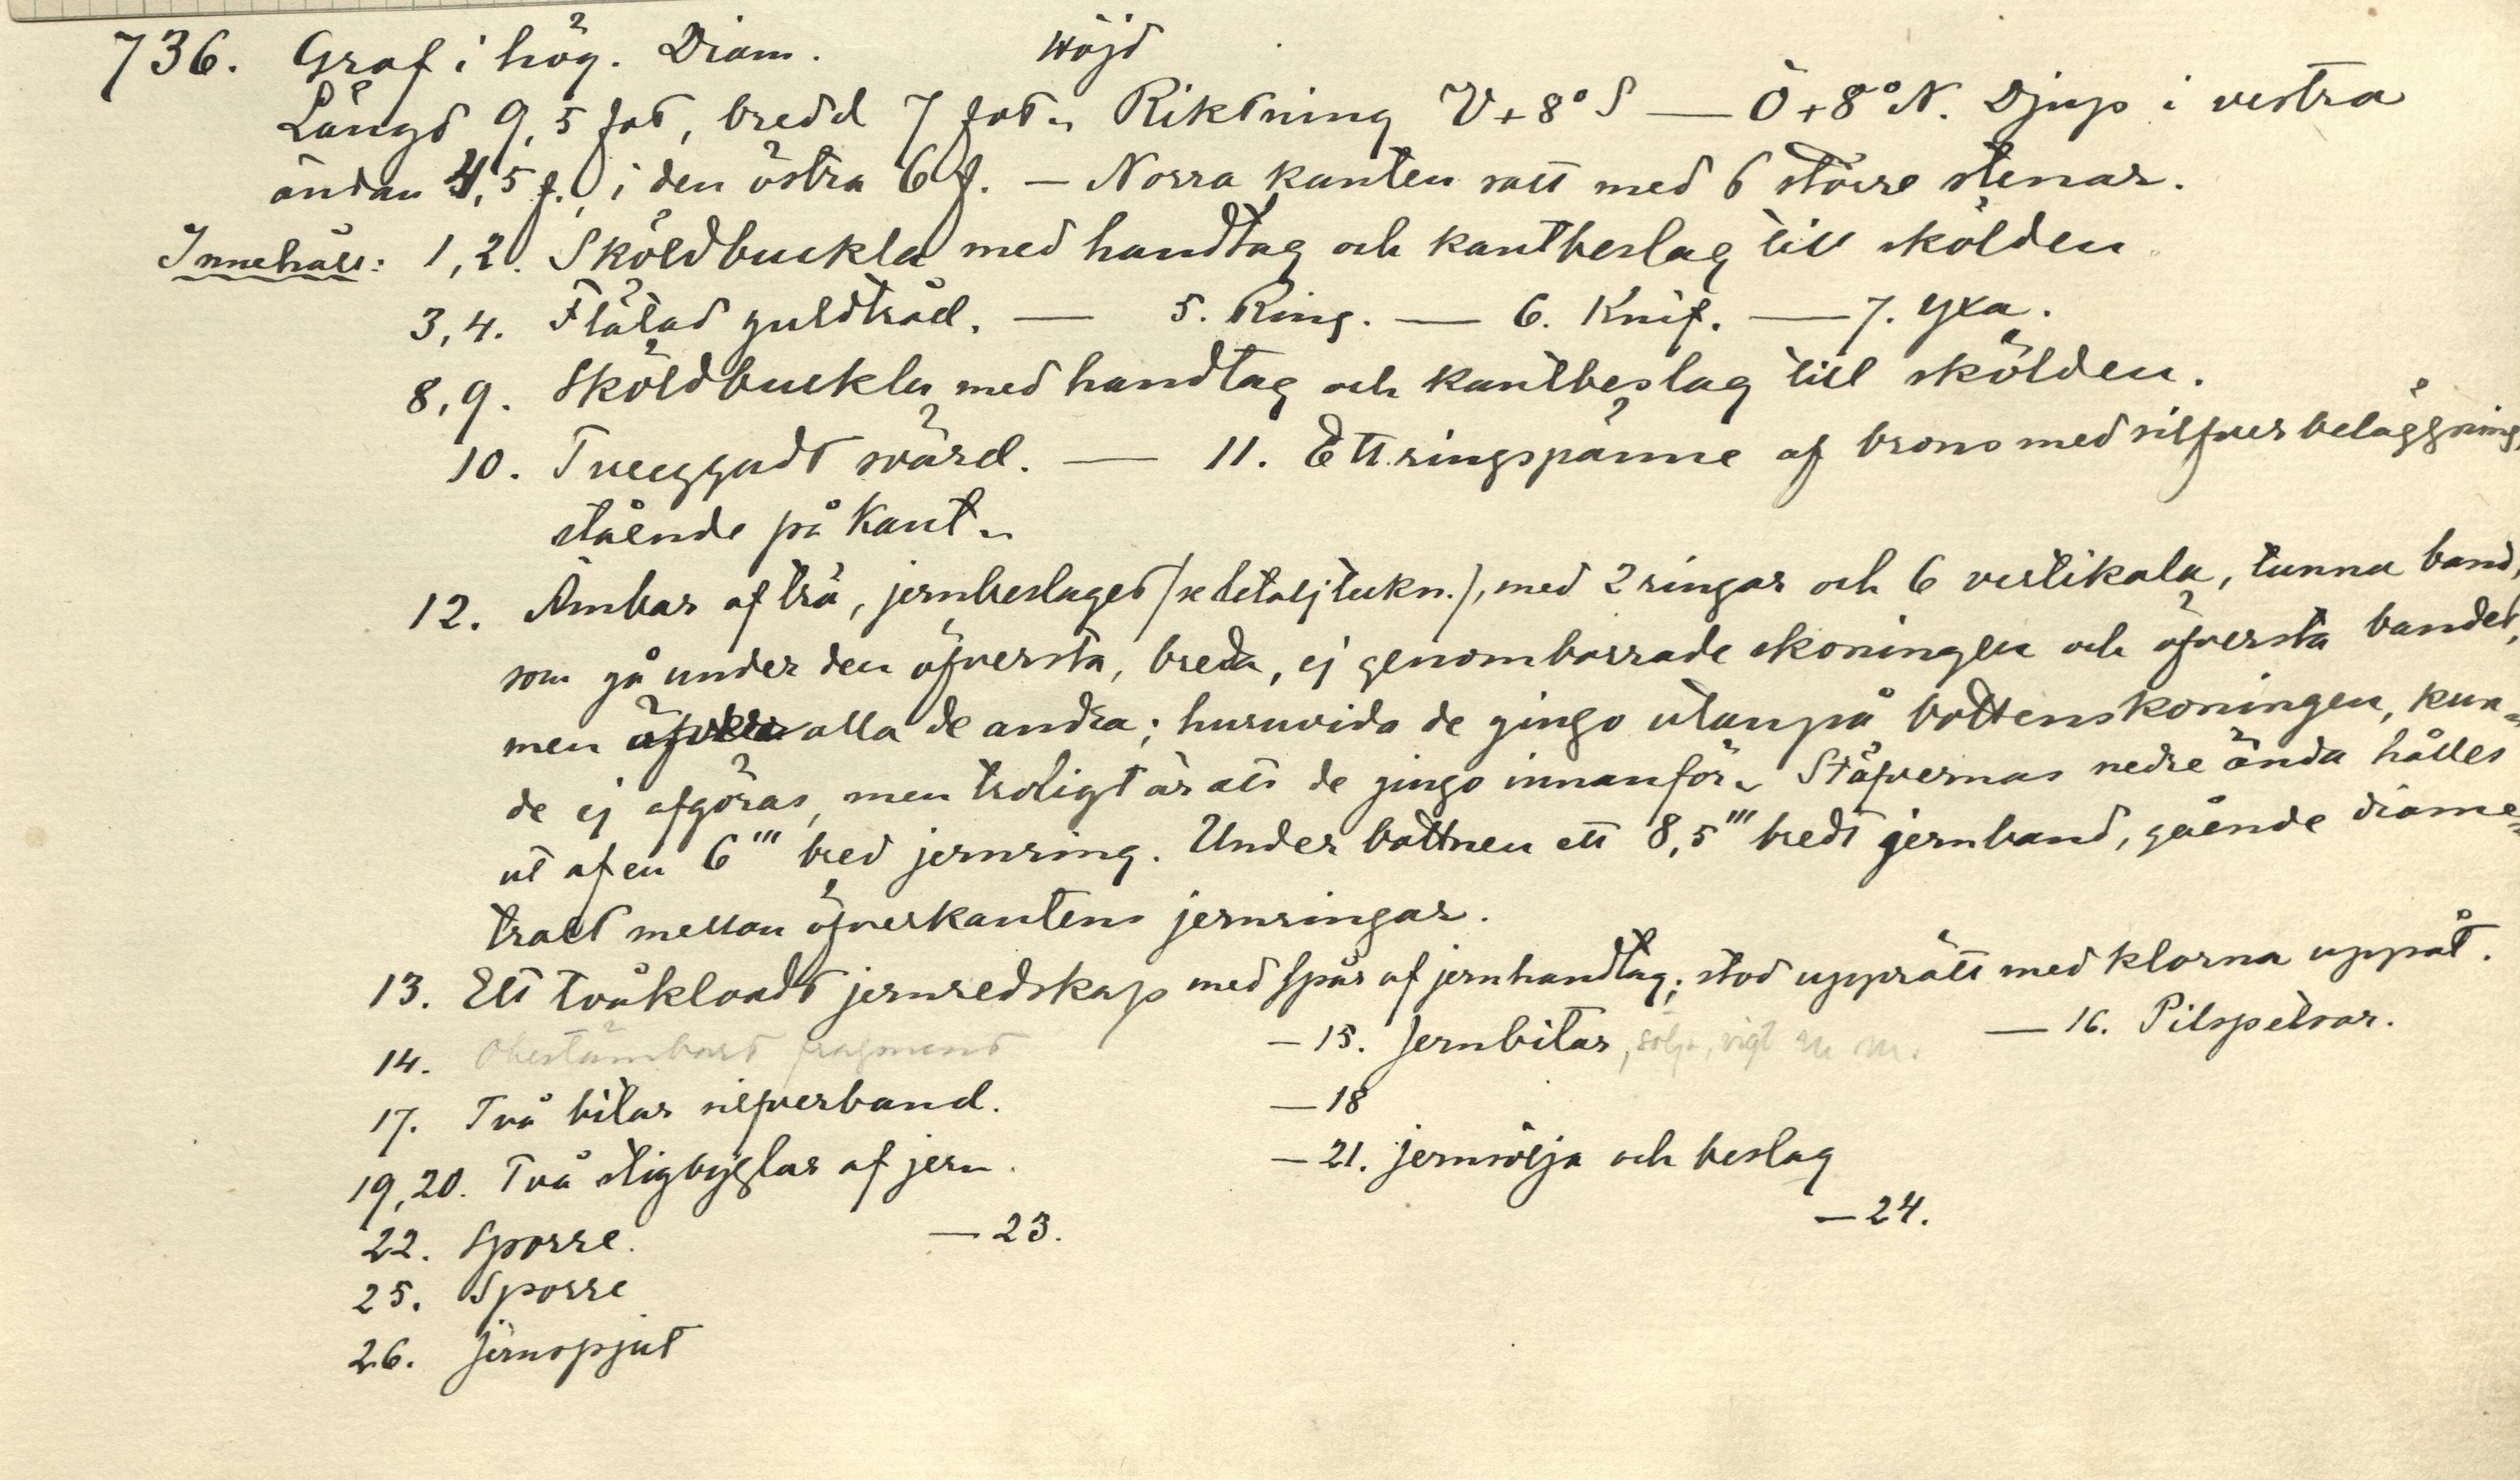 736. Graf i hög. Diam. Höjd
Längd 9,5 fot, bredd 7 fot. Riktning V+8° S — Ö+8° N. Djup i vestra
ändan 4,5 f., i den östra 6 f. — Norra kanten satt med 6 större stenar.
Innehåll: 1,2. Sköldbuckla med handtag och kantbeslag till skölden
3,4. Flätad guldtråd. — 5. Ring. — 6. Knif. — 7. Yxa.
8,9. Sköldbuckla med handtag och kantbeslag till skölden.
10. Tveeggadt svärd. — 11. Ett ringspänne af brons med silfverbeläggning,
stående på kant.
12. Ämbar af trä, jernbeslaget /se detaljteckn./, med 2 ringar och 6 vertikala, tunna band,
som gå under den öfversta, breda, ej genomborrade skoningen och öfversta bandet,
men öfver alla de andra; huruvida de gingo utanpå bottenskoningen, kun=
de ej afgöras, men troligt är att de gingo innanför. Stäfvernas nedre ända hålles
ut af en 6''' bred jernring. Under bottnen ett 8,5''' bredt jernband, gående diame=
tralt mellan öfverkantens jernringar.
13. Ett tvåkloadt jernredskap med spår af jernhandtag; stod upprätt med klorna uppåt.
14. Obestämbart fragment — 15. Jernbitar, sölja, vigt m m. — 16. Pilspetsar.
17. Två bitar silfverband. — 18
19,20. Två stigbyglar af jern. — 21. jernsölja och beslag
22. Sporre. — 23. — 24.
25. Sporre
26. jernspjut